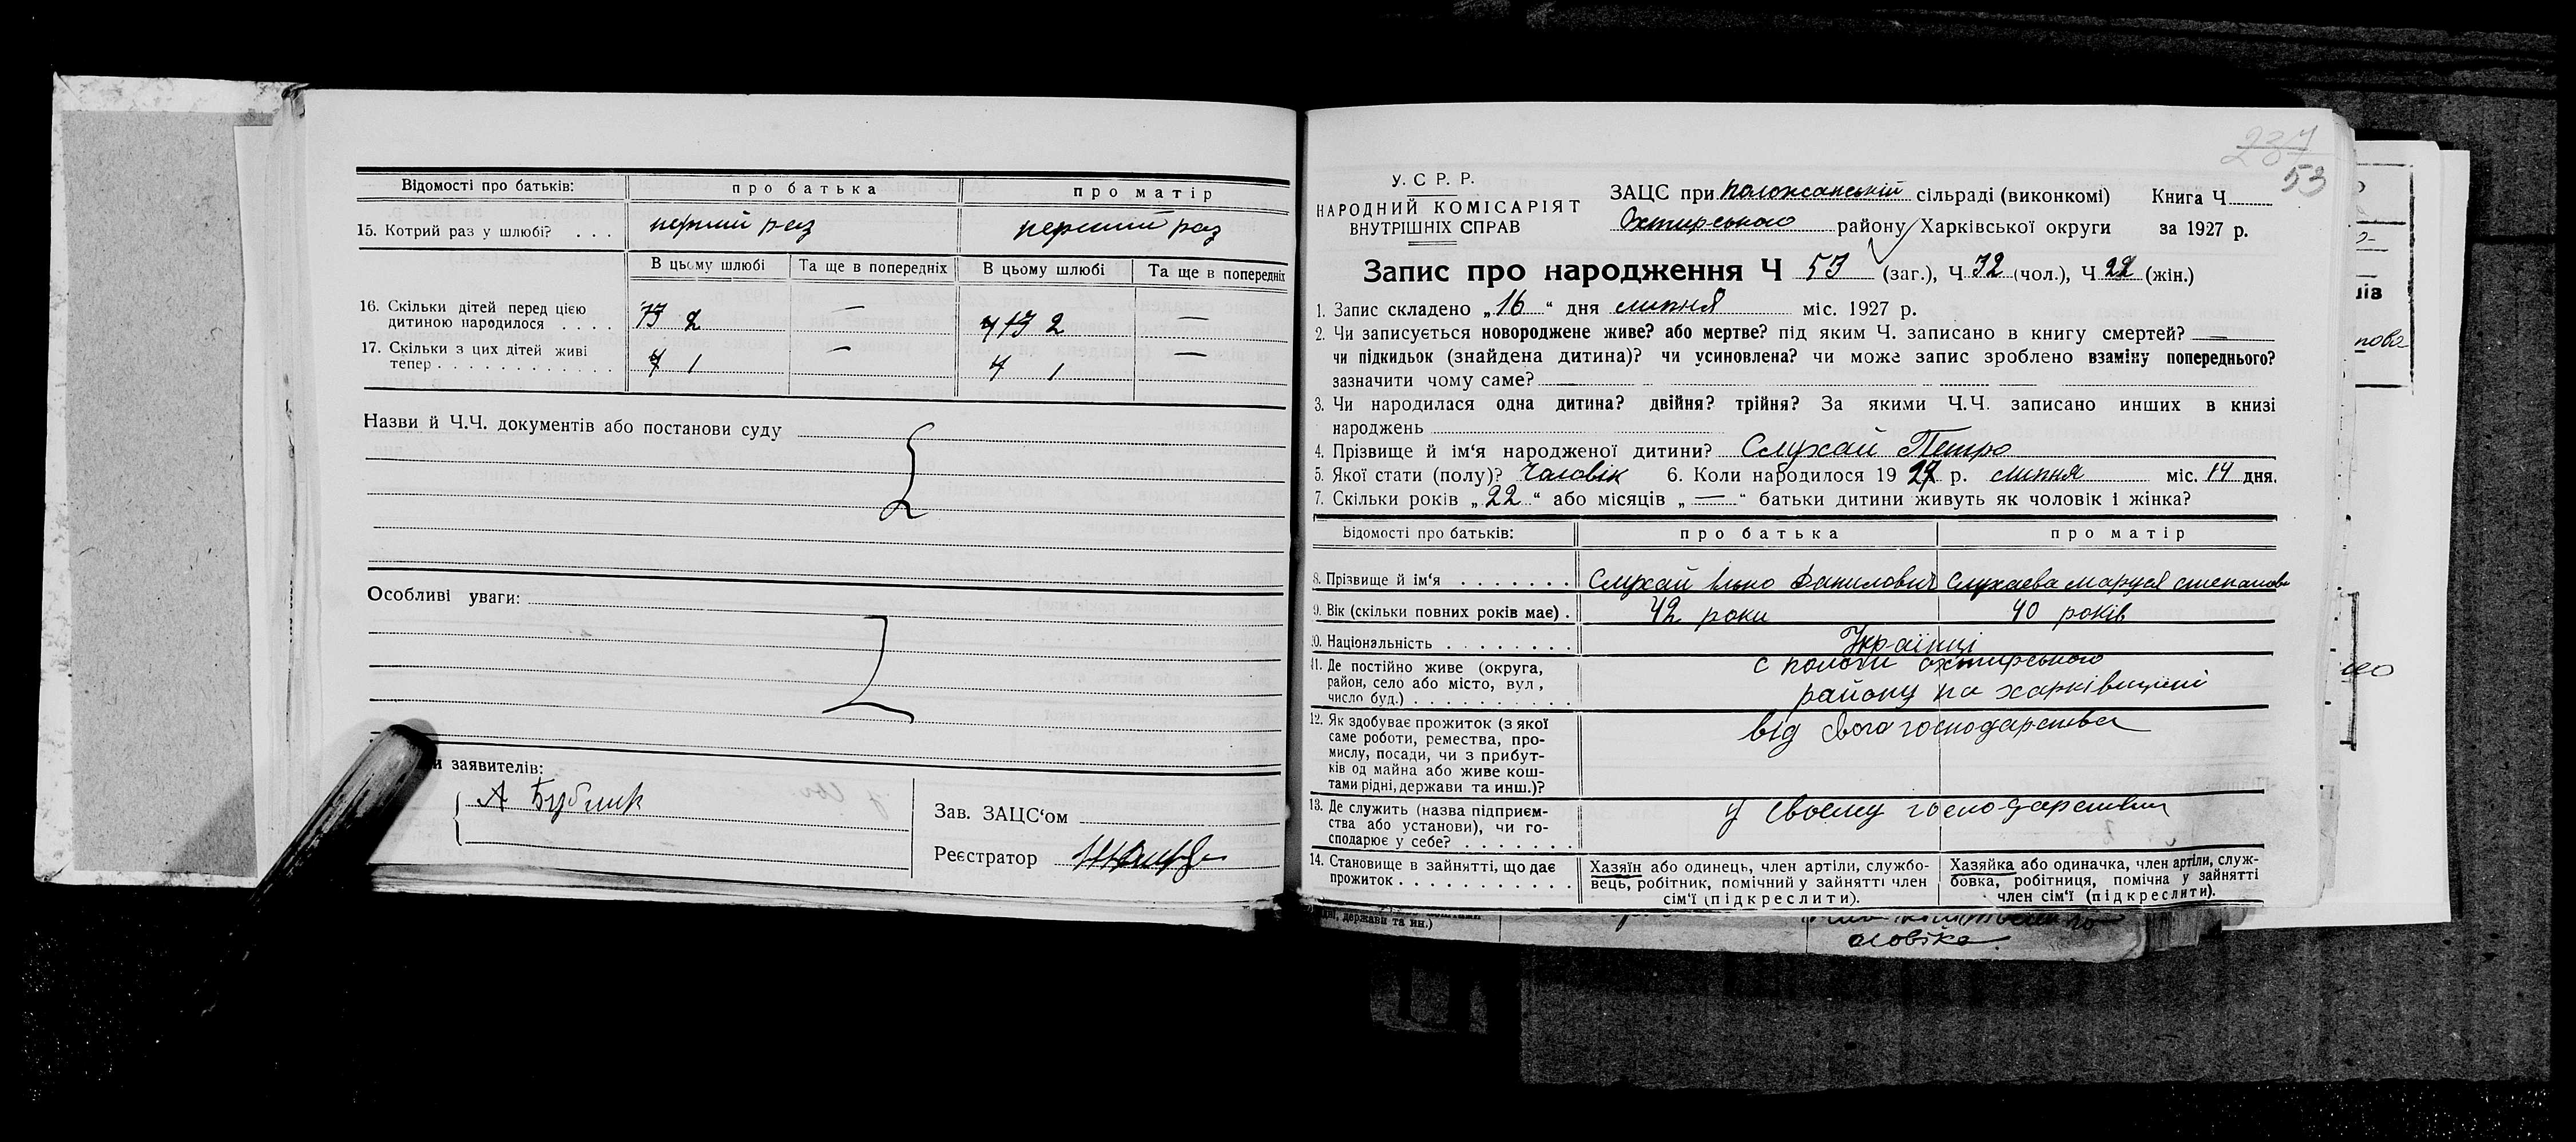 Відомості про батьків: про батька про матір
15. Котрий раз у шлюбі? . . . перший раз перший раз
В цьому шлюбі Та ще в попередніх В цьому шлюбі Та ще в попередніх
16. Скільки дітей перед цією
дитиною народилося . . . . 2 — 2 —
17. Скільки з цих дітей живі
тепер . . . . . . . . . . . . . 1 — 1 —
Назви й Ч.Ч. документів або постанови суду
Особливі уваги:
заявителів:
А Бублик
Зав. ЗАЦС‘ом
Реєстратор
237
53
У. С. Р. Р.
НАРОДНИЙ КОМІСАРІЯТ
ВНУТРІШНІХ СПРАВ
ЗАЦС при сільраді (виконкомі) Книга Ч
Охтирського району Харківської округи за 1927 р.
Запис про народження Ч 53 (заг.), Ч 32 (чол.), Ч (жін.)
1. Запис складено „16“ дня липня міс. 1927 р.
2. Чи записується новороджене живе? або мертве? під яким Ч. записано в книгу смертей? —
чи підкидьок (знайдена дитина)? чи усиновлена? чи може запис зроблено взаміну попереднього?
зазначити чому саме?
3. Чи народилася одна дитина? двійня? трійня? За якими Ч.Ч. записано инших в книзі
народжень
4. Прізвище й ім‘я народженої дитини? Слухай Петро
5. Якої стати (полу)? Чоловік 6. Коли народилося 1927 р. липня міс. 14 дня.
7. Скільки років „22“ або місяців „—“ батьки дитини живуть як чоловік і жінка?
Відомості про батьків: про батька про матір
8. Прізвище й ім‘я . . . . . . . Слухай Ілько Данилович Слухаєва Маруся Степанов
9. Вік (скільки повних років має) . 42 роки 40 років
10. Національність . . . . . . . . Українці
11. Де постійно живе (округа,
район, село або місто, вул,
число буд.) . . . . . . . . . .
с Пологи охтирського
району на харківщині
12. Як здобуває прожиток (з якої
саме роботи, ремества, про-
мислу, посади, чи з прибут-
ків од майна або живе кош-
тами рідні, держави та инш.)?
від свого господарства
13. Де служить (назва підприєм-
ства або установи), чи го-
сподарює у себе? . . . . . . .
у своєму господарстви
14. Становище в зайнятті, що дає
прожиток . . . . . . . . . . . .
Хазяїн або одинець, член артіли, службо-
вець, робітник, помічний у зайнятті член
сім‘ї (підкреслити).
Хазяйка або одиначка, член артіли, служ-
бовка, робітниця, помічна у зайнятті
член сім‘ї (підкреслити).
держави та ин.)